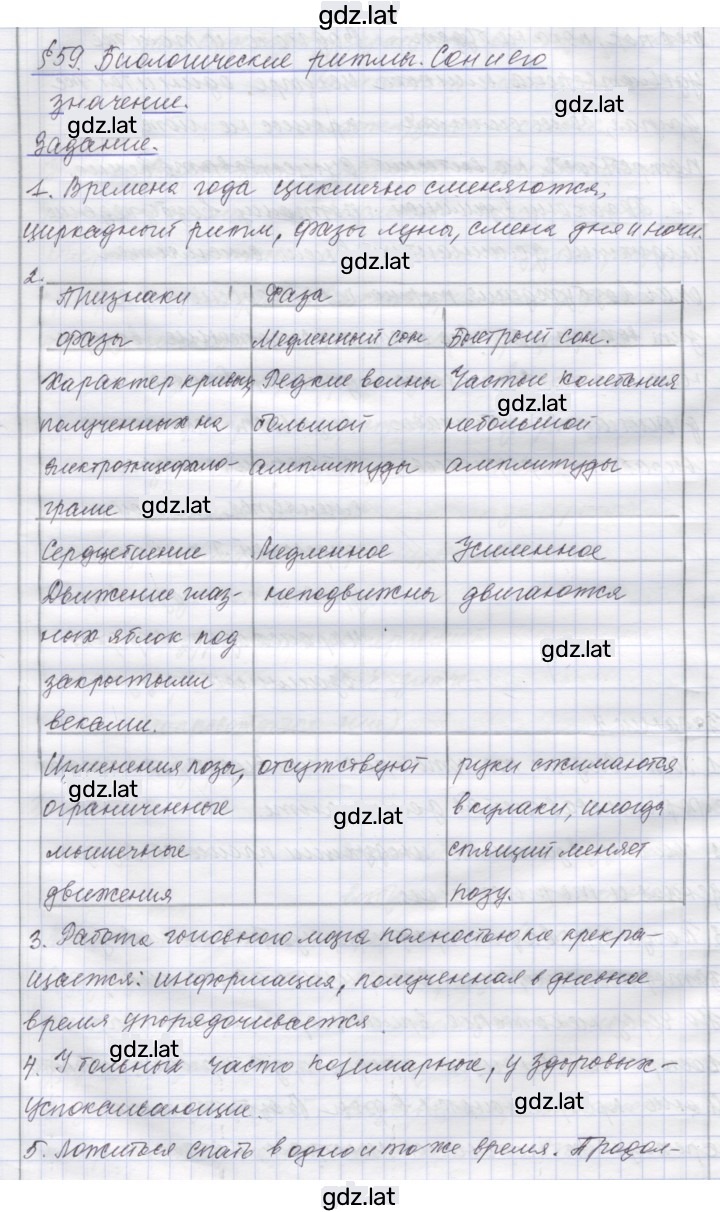 gdz.lat
§59. Биологические ритмы. Сон и его
значение.
gdz.lat
gdz.lat
Задание.
1. Времена года циклично сменяются,
циркадный ритм, фазы луны, смена дня и ночи.
gdz.lat
2.
Признаки Фаза
фазы Медленный сон Быстрый сон.
Характер кривых, Редкие волны Частые колебания
gdz.lat
полученных на большой небольшой
электроэнцефало- амплитуды амплитуды
грамме gdz.lat
Сердцебиение Медленное Усиленное
Движение глаз- неподвижны двигаются
ных яблок под
gdz.lat
закрытыми
веками.
Изменения позы, отсутствуют руки сжимаются
gdz.lat
ограниченные в кулаки, иногда
gdz.lat
мышечные спящий меняет
движения позу.
3. Работа головного мозга полностью не прекра-
щается: информация, полученная в дневное
время упорядочивается
gdz.lat
4. У больных часто кошмарные, у здоровых -
успокаивающие.
gdz.lat
5. Ложиться спать в одно и то же время. Продол-
gdz.lat